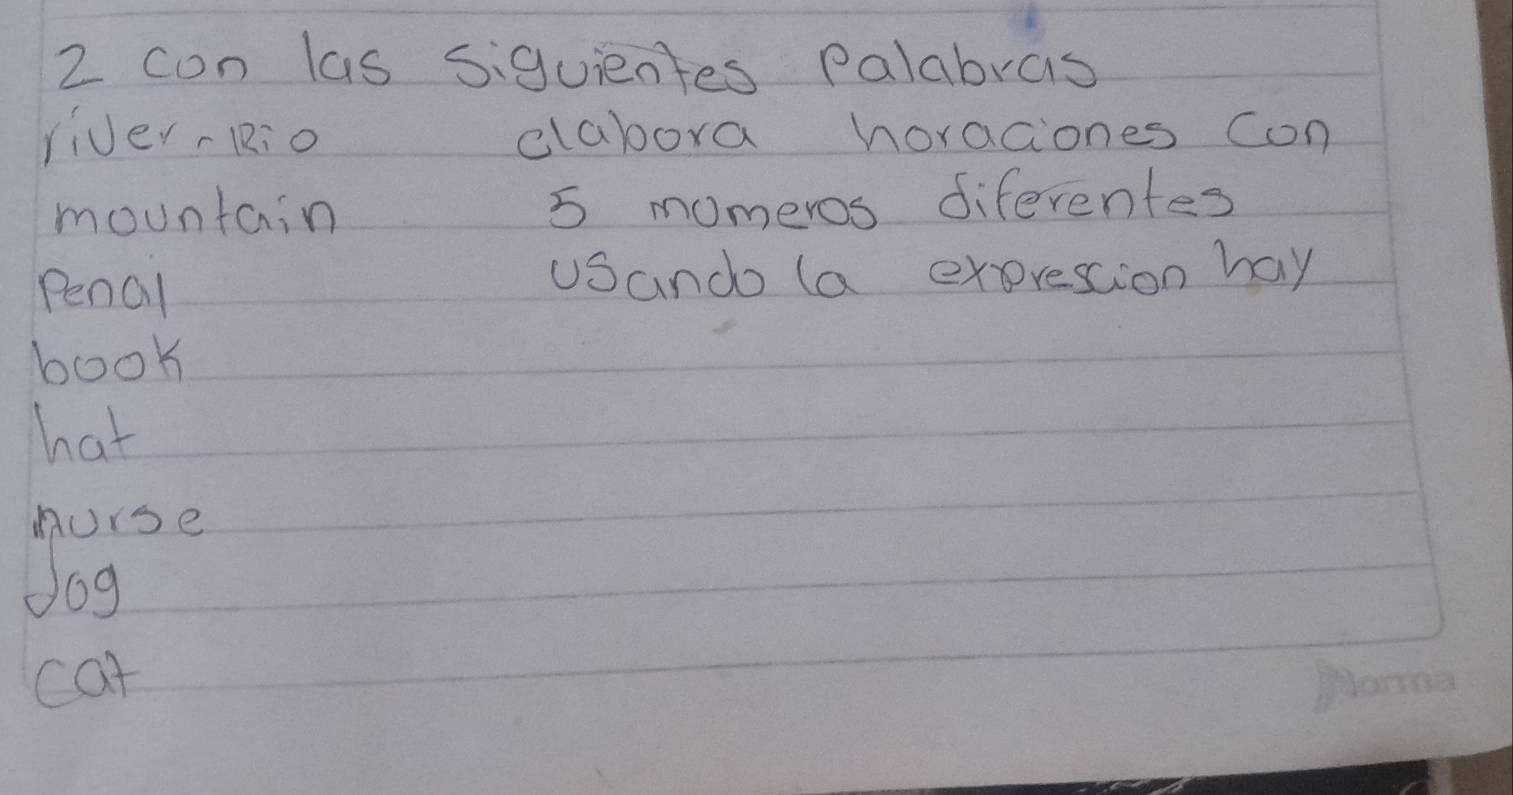 2 con las siguientes palabras
river - Rio elabora horaciones con
mountain 5 momeros diferentes
Penal usando la exprescion hay
book
hat
nurse
dog
cat
Norma